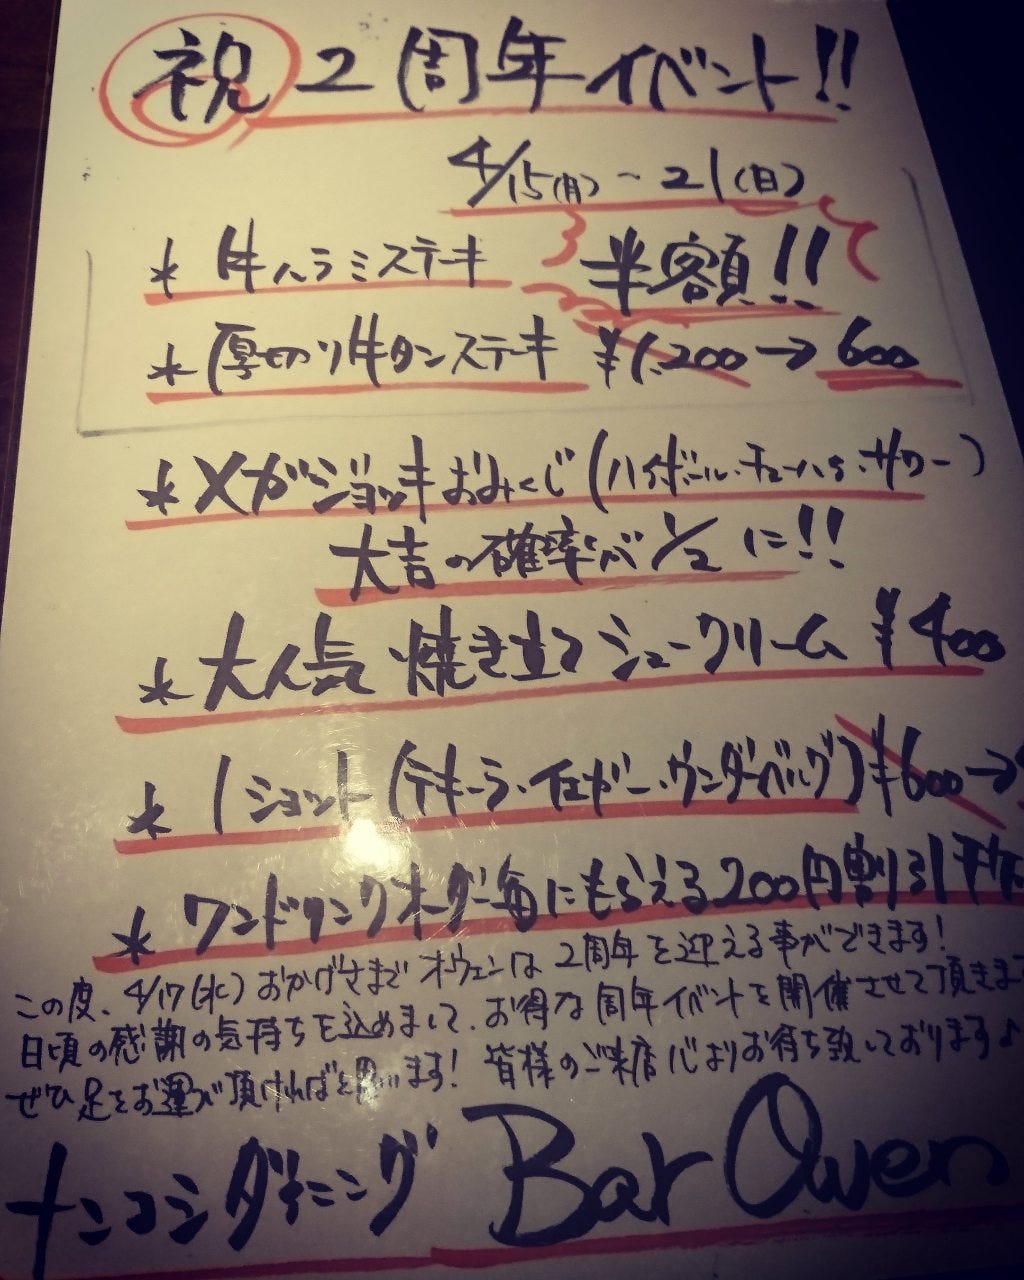 祝 2周年イベント!!
4/15(月)~21(日)
* 牛ハラミステーキ 半額!!
* 厚切り牛タンステーキ ¥1,200→600
* メガジョッキおみくじ(ハイボール・チューハイ・サワー)
大吉の確率が1/2に!!
* 大人気 焼き立てシュークリーム ¥400
* 1ショット(テキーラ・イエガー・ウンダーベルグ)¥600→
* ワンドリンクオーダー毎にもらえる200円割引
この度、4/17(水)おかげさまでオーウェンは2周年を迎える事ができます!
日頃の感謝の気持ちを込めまして、お得な周年イベントを開催させて頂きま
ぜひ足をお運び頂ければと思います! 皆様のご来店心よりお待ち致しております♪
ナンコシダイニング Bar Owen